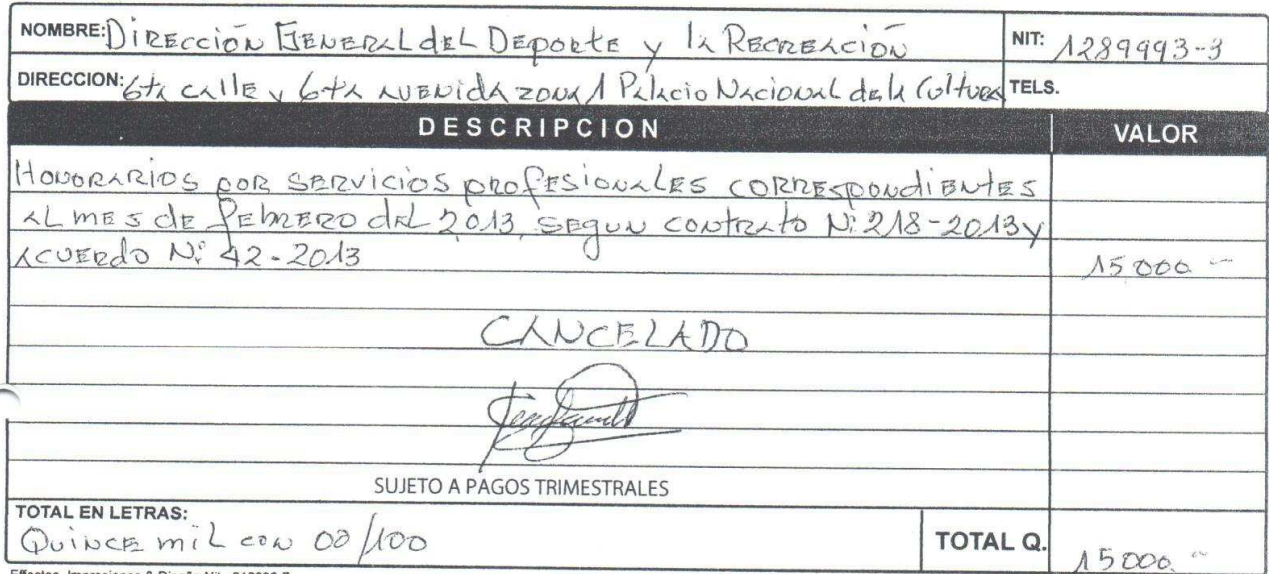 NOMBRE: Dirección General del Deporte y la Recreación NIT: 1289993-3
DIRECCION: 6ta calle y 6ta avenida zona 1 Palacio Nacional de la Cultura TELS.
DESCRIPCION VALOR
Honorarios por servicios profesionales correspondientes
al mes de febrero del 2,013, segun contrato Nº 218-2013 y
acuerdo Nº 42-2013 15000.-
CANCELADO
SUJETO A PAGOS TRIMESTRALES
TOTAL EN LETRAS:
Quince mil con 00/100 TOTAL Q. 15000.-